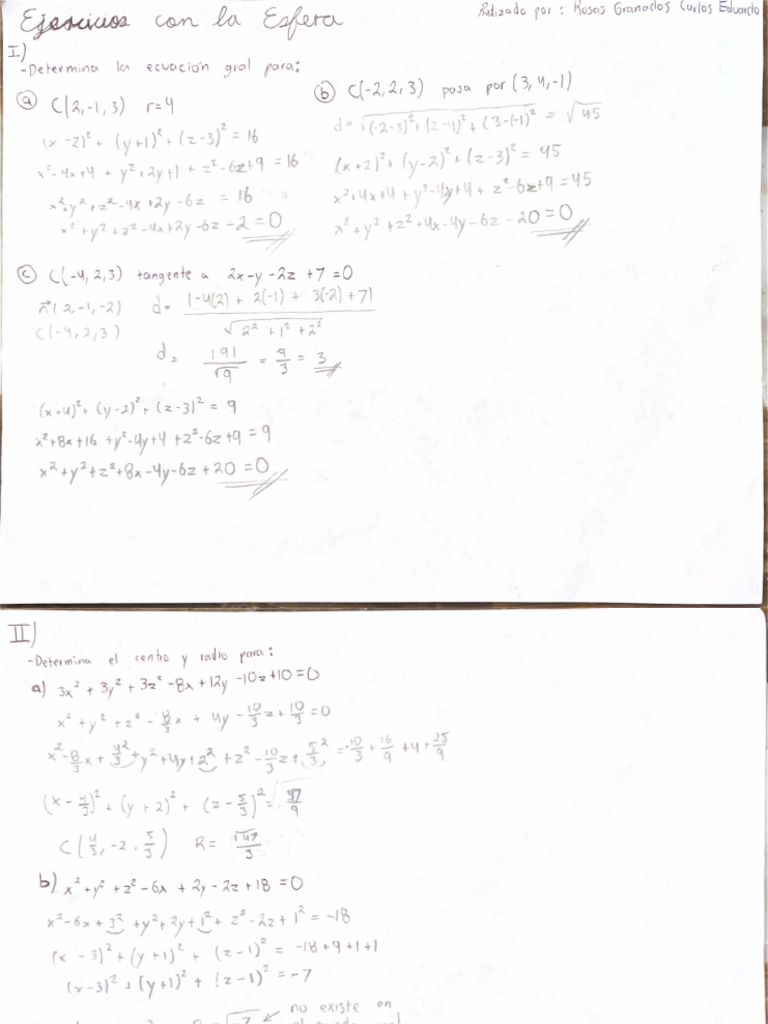 Ejercicios con la Esfera
Realizado por: Rosas Granados Carlos Eduardo
I)
-Determina la ecuación gral para:
a) C(2,-1,3) r=4
(x-2)² + (y+1)² + (z-3)² = 16
x²-4x+4 + y²+2y+1 + z²-6z+9 = 16
x²+y²+z²-4x+2y-6z = 16
x²+y²+z²-4x+2y-6z-2=0
b) C(-2,2,3) pasa por (3,4,-1)
d=√(-2-3)²+(2-4)²+(3-(-1))² = √45
(x+2)²+(y-2)²+(z-3)² = 45
x²+4x+4+y²-4y+4+z²-6z+9=45
x²+y²+z²+4x-4y-6z-20=0
c) C(-4,2,3) tangente a 2x-y-2z+7=0
n(2,-1,-2) d= |-4(2) + 2(-1) + 3(-2)+7| / √2²+1²+2²
C(-4,2,3)
d= |9| / √9 = 9/3 = 3
(x+4)²+(y-2)²+(z-3)² = 9
x²+8x+16+y²-4y+4+z²-6z+9=9
x²+y²+z²+8x-4y-6z+20=0
II)
-Determina el centro y radio para:
a) 3x²+3y²+3z²-8x+12y-10z+10=0
x²+y²+z²-8/3x + 4y-10/3z+10/3=0
x²-8/3x+4/3²+y²+4y+2²+z²-10/3z+5/3²=-10/3+16/9+4+25/9
(x-4/3)²+(y+2)²+(z-5/3)²=47/9
C(4/3,-2,5/3) R= √47/3
b) x²+y²+z²-6x+2y-2z+18=0
x²-6x+3²+y²+2y+1²+z²-2z+1²=-18
(x-3)²+(y+1)²+(z-1)² = -18+9+1+1
(x-3)²+(y+1)²+(z-1)²=-7
√-7 no existe en